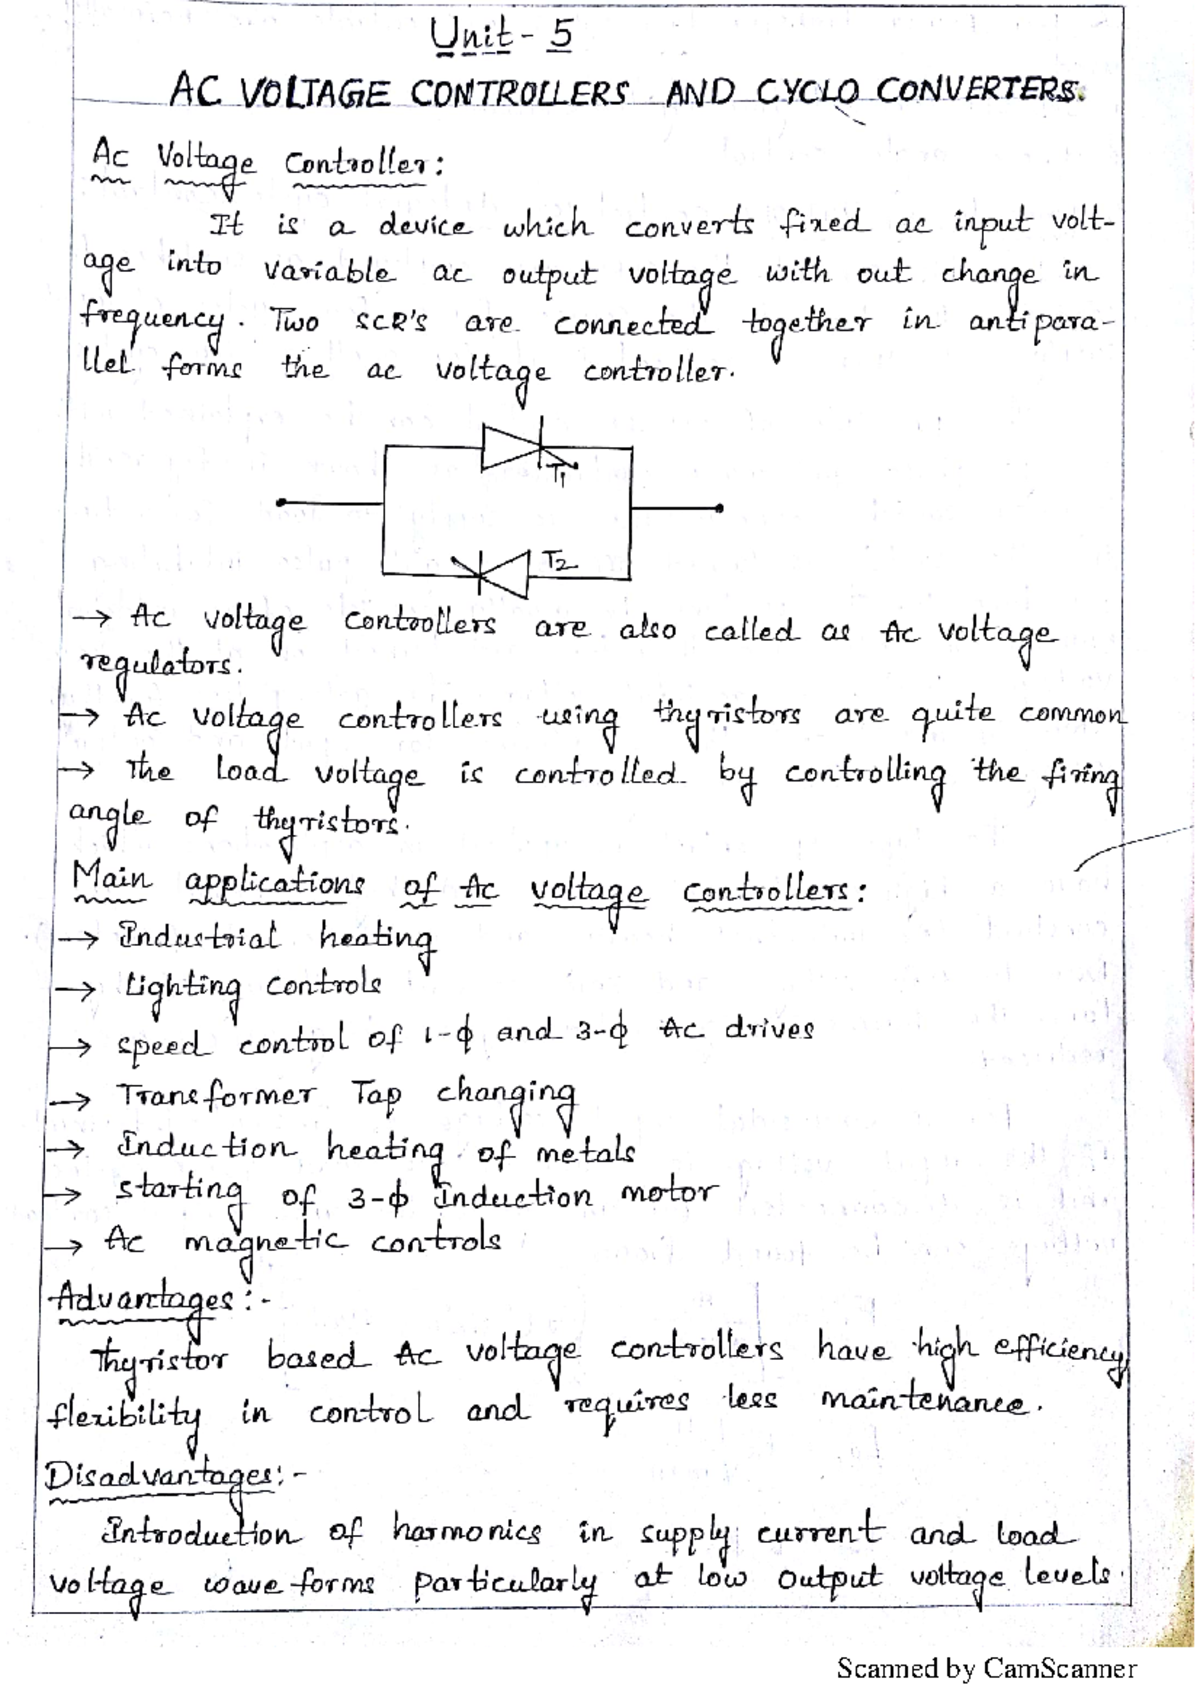 Unit - 5
AC VOLTAGE CONTROLLERS AND CYCLO CONVERTERS.
Ac Voltage Controller:
It is a device which converts fixed ac input volt-
age into variable ac output voltage with out change in
frequency. Two SCR's are connected together in antipara-
llel forms the ac voltage controller.
T1
T2
→ Ac voltage controllers are also called as Ac voltage
regulators.
→ Ac voltage controllers using thyristors are quite common
→ The load voltage is controlled by controlling the firing
angle of thyristors.
Main applications of Ac voltage controllers:
→ Industrial heating
→ Lighting controls
→ speed control of 1-ϕ and 3-ϕ Ac drives
→ Transformer Tap changing
→ Induction heating of metals
→ starting of 3-ϕ Induction motor
→ Ac magnetic controls
Advantages:-
Thyristor based Ac voltage controllers have high efficiency,
flexibility in control and requires less maintenance.
Disadvantages:-
Introduction of harmonics in supply current and load
voltage wave forms particularly at low output voltage levels.
Scanned by CamScanner